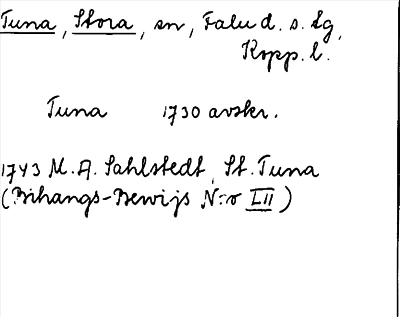 Tuna, Stora, sn, Falu d. s. lg,
Kopp. l.
Tuna 1730 avskr.
1743 M. A. Sahlstedt, St. Tuna
(Bihangs-Bewijs N:o LII)